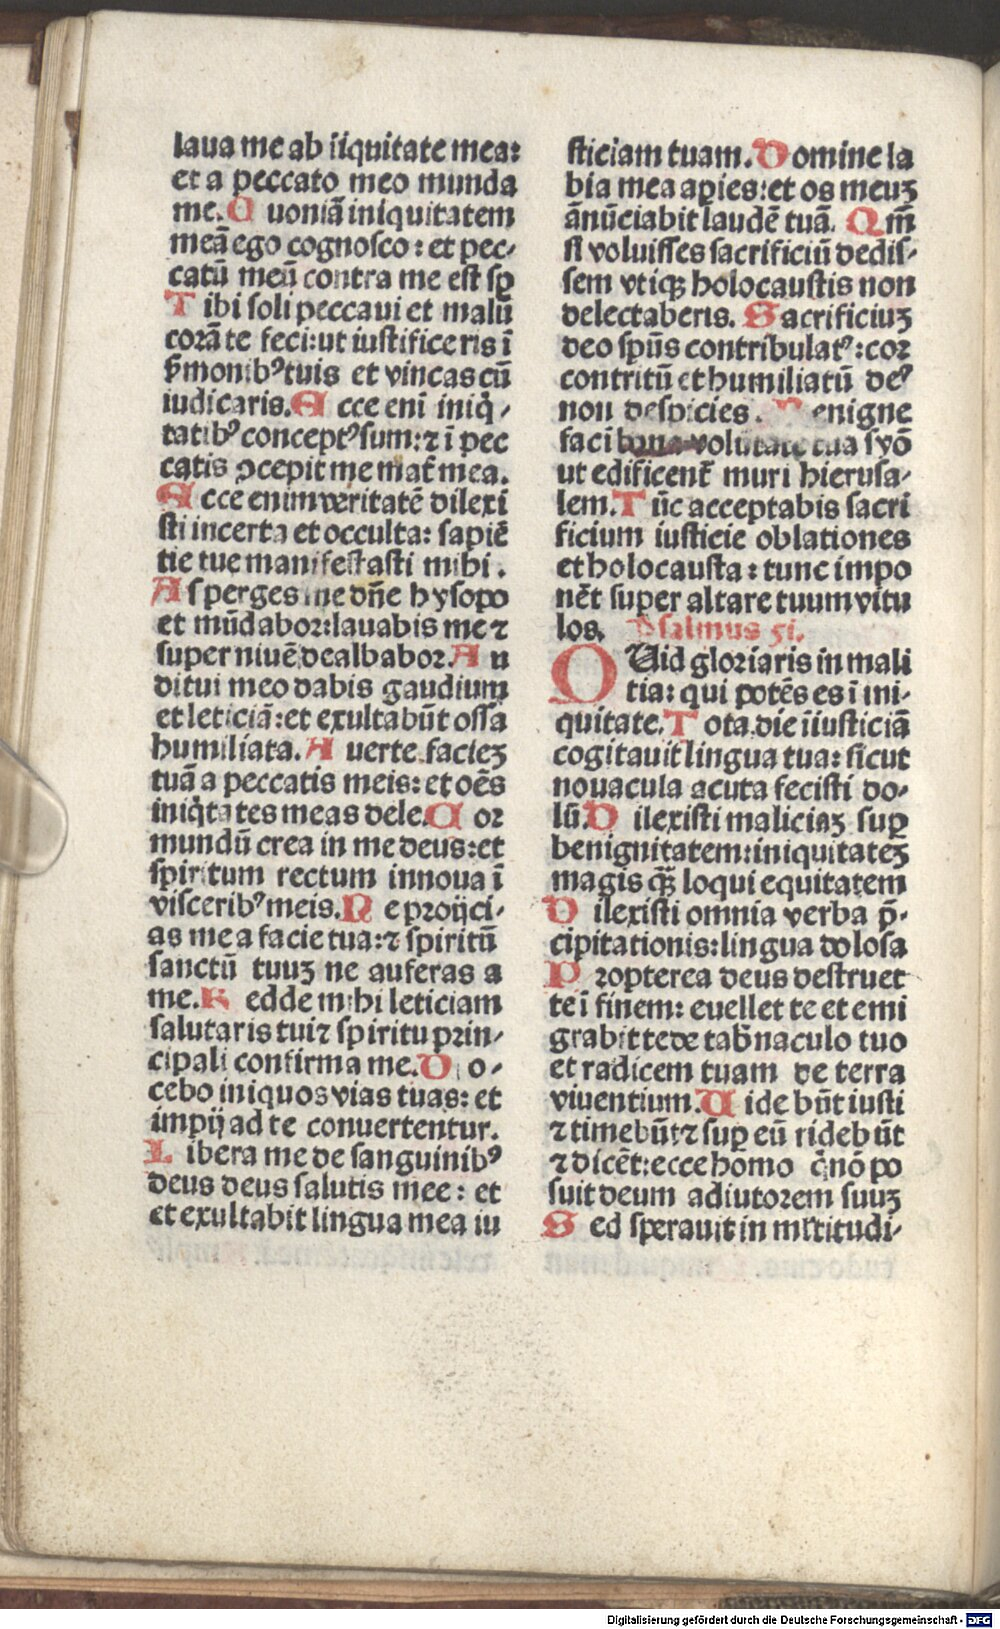 laua me ab iiquitate mea:
et a peccato meo munda
me. Q uoniā iniquitatem
meā ego cognosco: et pec-
catū meū contra me est sp̲
T ibi soli peccaui et malū
corā te feci: ut iustificeris ī
s̄monibꝰ tuis et vincas cū
iudicaris. E cce eni iniq̇-
tatibꝰ conceptꝰ sum: ⁊ ī pec
catis ꝯcepit me mat̄ mea.
E cce enim veritatē dilexi
sti incerta et occulta: sapiē
tie tue manifestasti mihi.
A sperges me dn̄e hysopo
et mūdabor: lauabis me ⁊
super niuē dealbabor. A u
ditui meo dabis gaudium
et leticiā: et exultabūt ossa
humiliata. A uerte facieꝫ
tuā a peccatis meis: et oēs
iniq̇tates meas dele. C or
mundū crea in me deus: et
spiritum rectum innoua ī
visceribꝰ meis. N e proijci-
as me a facie tua: ⁊ spiritū
sanctū tuuꝫ ne auferas a
me. R edde mihi leticiam
salutaris tui ⁊ spiritu prin-
cipali confirma me. D o-
cebo iniquos vias tuas: et
impij ad te conuertentur.
L ibera me de sanguinibꝰ
deus deus salutis mee: et
et exultabit lingua mea iu
sticiam tuam. D omine la
bia mea ap̲ies: et os meuꝫ
ānūciabit laudē tuā. Qm̄
si voluisses sacrificiū dedis-
sem vtiqꝫ holocaustis non
delectaberis. S acrificiuꝫ
deo spūs contribulatꝰ: cor
contritū et humiliatū deꝰ
non despicies. B enigne
fac ī bona volūtate tua syō
ut edificent᷑ muri hierusa-
lem. T ūc acceptabis sacri
ficium iusticie oblationes
et holocausta: tunc impo
nēt super altare tuum vitu
los. Psalmus 51.
Q Uid gloriaris in mali
tia: qui potēs es ī ini-
quitate. T ota die īiusticiā
cogitauit lingua tua: sicut
nouacula acuta fecisti do-
lū. D ilexisti maliciaꝫ sup̲
benignitatem: iniquitateꝫ
magis qꝫ̄ loqui equitatem
D ilexisti omnia verba p̄-
cipitationis: lingua dolosa
P ropterea deus destruet
te ī finem: euellet te et emi
grabit te de tab̄naculo tuo
et radicem tuam de terra
viuentium. U idebūt iusti
⁊ timebūt ⁊ sup̲ eū ridebūt
⁊ dicēt: ecce homo q̇ nō po
suit deum adiutorem suuꝫ
S ed sperauit in ml̄titudi-
Digitalisierung gefördert durch die Deutsche Forschungsgemeinschaft - DFG